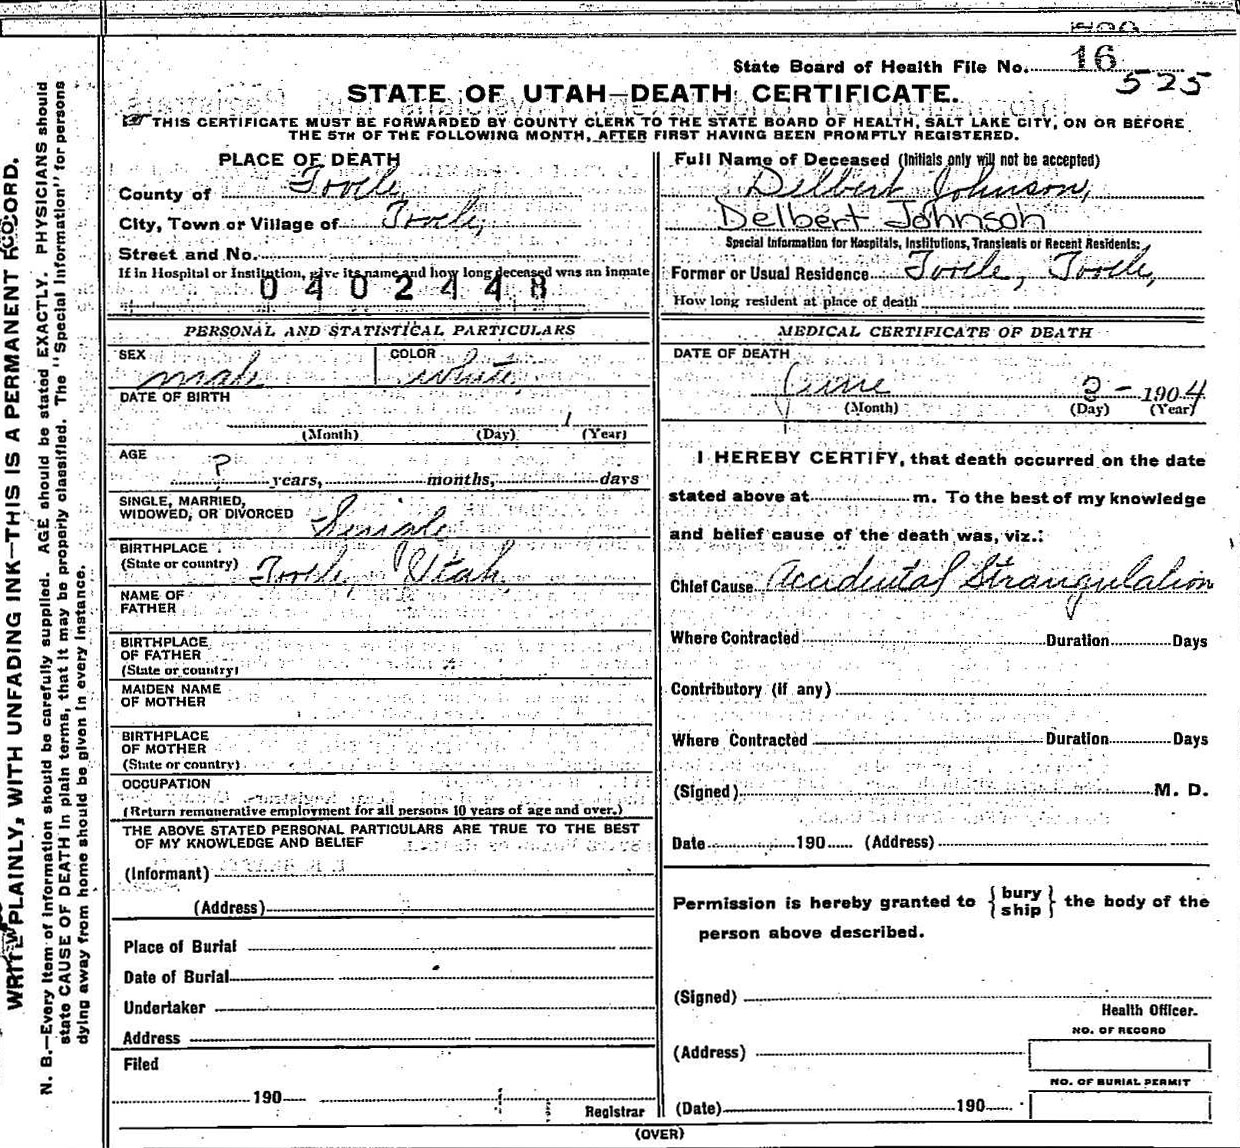 16
525
State Board of Health File No.
STATE OF UTAH—DEATH CERTIFICATE.
☞ THIS CERTIFICATE MUST BE FORWARDED BY COUNTY CLERK TO THE STATE BOARD OF HEALTH, SALT LAKE CITY, ON OR BEFORE
THE 5TH OF THE FOLLOWING MONTH, AFTER FIRST HAVING BEEN PROMPTLY REGISTERED.
PLACE OF DEATH
County of Tooele
City, Town or Village of Tooele,
Street and No.
If in Hospital or Institution, give its name and how long deceased was an inmate
0402448
PERSONAL AND STATISTICAL PARTICULARS
SEX male COLOR White
DATE OF BIRTH
1
(Month) (Day) (Year)
AGE
? years, months, days
SINGLE, MARRIED,
WIDOWED, OR DIVORCED Single
BIRTHPLACE
(State or country) Tooele, Utah
NAME OF
FATHER
BIRTHPLACE
OF FATHER
(State or country)
MAIDEN NAME
OF MOTHER
BIRTHPLACE
OF MOTHER
(State or country)
OCCUPATION
(Return remunerative employment for all persons 10 years of age and over.)
THE ABOVE STATED PERSONAL PARTICULARS ARE TRUE TO THE BEST
OF MY KNOWLEDGE AND BELIEF
(Informant)
(Address)
Place of Burial
Date of Burial
Undertaker
Address
Filed
190
Registrar
Full Name of Deceased (Initials only will not be accepted)
Delbert Johnson,
Delbert Johnson
Special Information for Hospitals, Institutions, Transients or Recent Residents:
Former or Usual Residence Tooele, Tooele,
How long resident at place of death
MEDICAL CERTIFICATE OF DEATH
DATE OF DEATH
June 2 - 1904
(Month) (Day) (Year)
I HEREBY CERTIFY, that death occurred on the date
stated above at m. To the best of my knowledge
and belief cause of the death was, viz.:
Chief Cause Accidental Strangulation
Where Contracted Duration Days
Contributory (if any)
Where Contracted Duration Days
(Signed) M. D.
Date 190 (Address)
Permission is hereby granted to {bury
ship} the body of the
person above described.
(Signed)
Health Officer.
NO. OF RECORD
(Address)
NO. OF BURIAL PERMIT
(Date) 190
(OVER)
WRITE PLAINLY, WITH UNFADING INK—THIS IS A PERMANENT RECORD.
N. B.—Every item of information should be carefully supplied. AGE should be stated EXACTLY. PHYSICIANS should
state CAUSE OF DEATH in plain terms, that it may be properly classified. The "Special Information" for persons
dying away from home should be given in every instance.